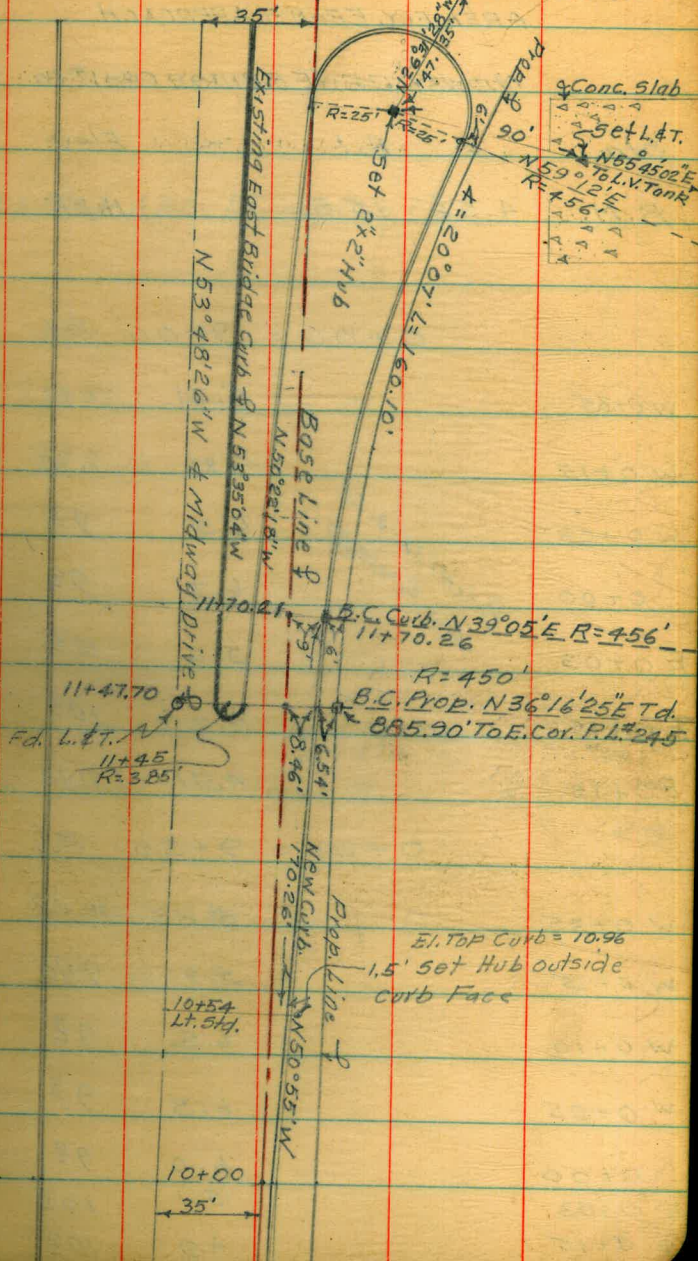 35'
N26°31'28"W
147.35'
Prop. ⅊
Conc. Slab
Set L.&T.
N55°45'02"E
To L.V. Tank
90'
N59°12'E
R=456'
6'
R=25'
R=25'
Set 2"x2" Hub
∡=20°07' L=160.10'
Existing East Bridge Curb
N53°35'04"W
N53°48'26"W
Midway Drive
Base Line
N50°22'18"W
11+70.21
B.C. Curb. N39°05'E R=456'
11+70.26
9'
6'
R=450'
11+47.70
B.C. Prop. N36°16'25"E Td.
885.90' To E. Cor. P.L.#245
Fd. L.&T.
11+45
R=3.85'
8.46'
6.54'
New Curb.
170.26'
N50°55'W
Prop. Line
El. Top Curb = 10.96
1.5' Set Hub outside
curb Face
10+54
Lt. Std.
10+00
35'